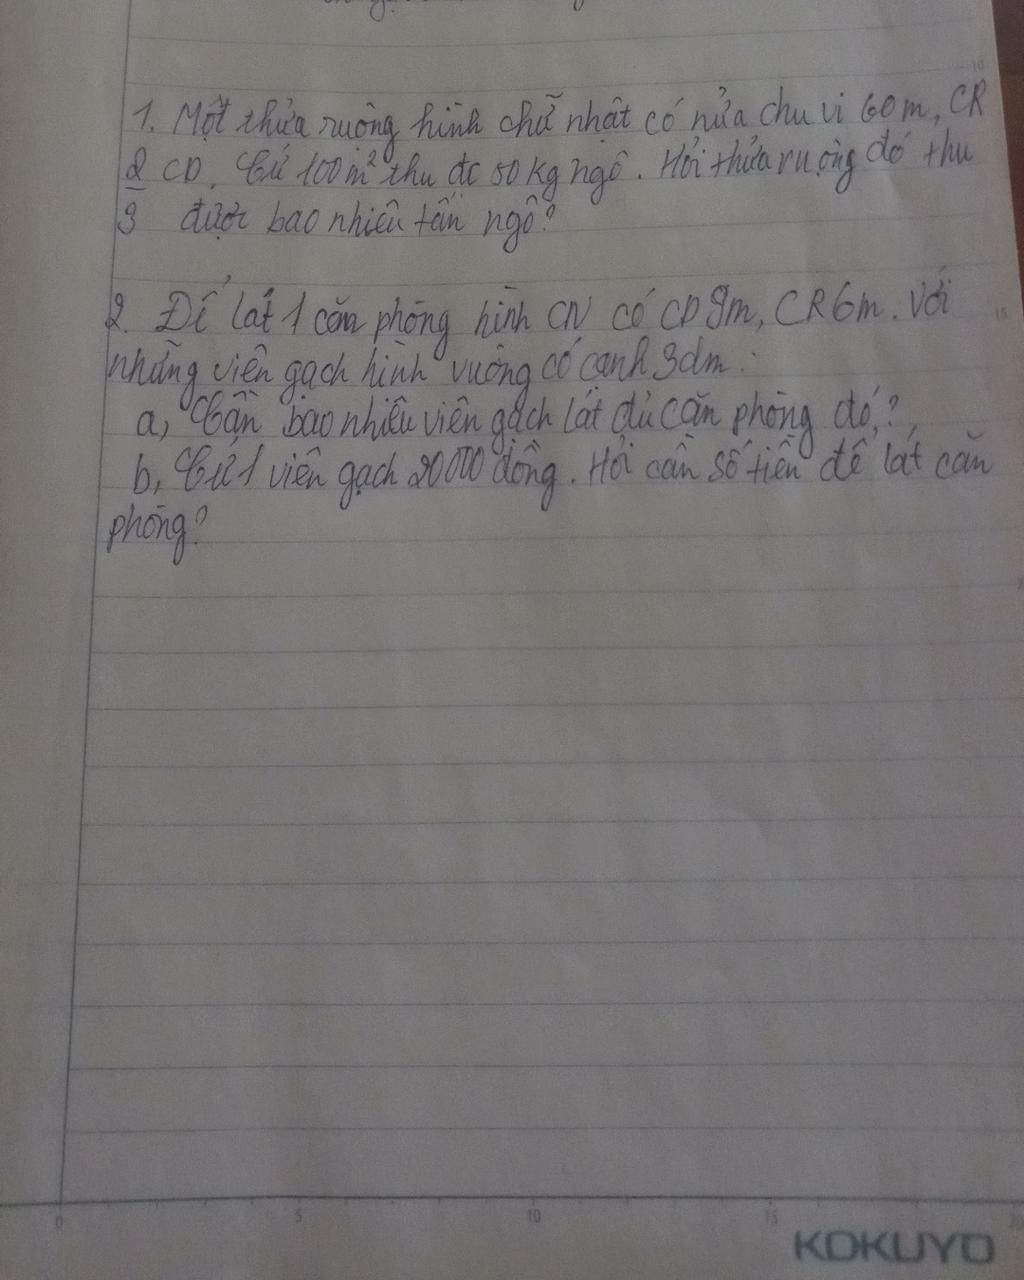 10
1. Một thửa ruộng hình chữ nhật có nửa chu vi 60m, CR
2/3 CD. Cứ 100m² thu đc 50kg ngô. Hỏi thửa ruộng đó thu
được bao nhiêu tấn ngô?
2. Để lát 1 căn phòng hình CN có CD 9m, CR 6m. Với
những viên gạch hình vuông có cạnh 3dm:
a, Cần bao nhiêu viên gạch lát đủ căn phòng đó?
b, Cứ 1 viên gạch 20000 đồng. Hỏi cần số tiền để lát căn
phòng?
15
0 5 10 15 20
KOKUYO